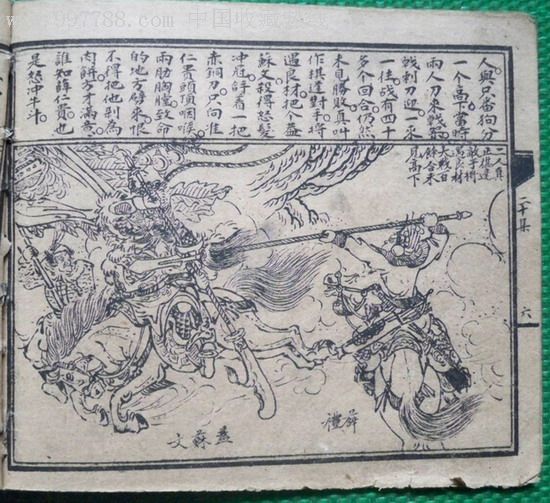 www.997788.com 中国收藏热线
人與只番狗分
一個高下。當時
兩人刀來戟
戟刺刀迎一來
一往。戰有四十
多個回合。仍然
未見勝敗真叫
作棋逢對手。將
遇良材把個蓋
蘇文殺得怒髮
冲冠。着一把
赤銅刀。只向
仁貴頭頂咽喉。
兩肋胸膛致命
的地方劈來。恨
不得把他剁為
肉餅。方才滿意
誰知薛仁貴也
是怒冲牛斗。
二人真
正棋逢
敵手將
遇良材
大戰日
餘合未
見高下
二十集
六
薛禮
蓋蘇文